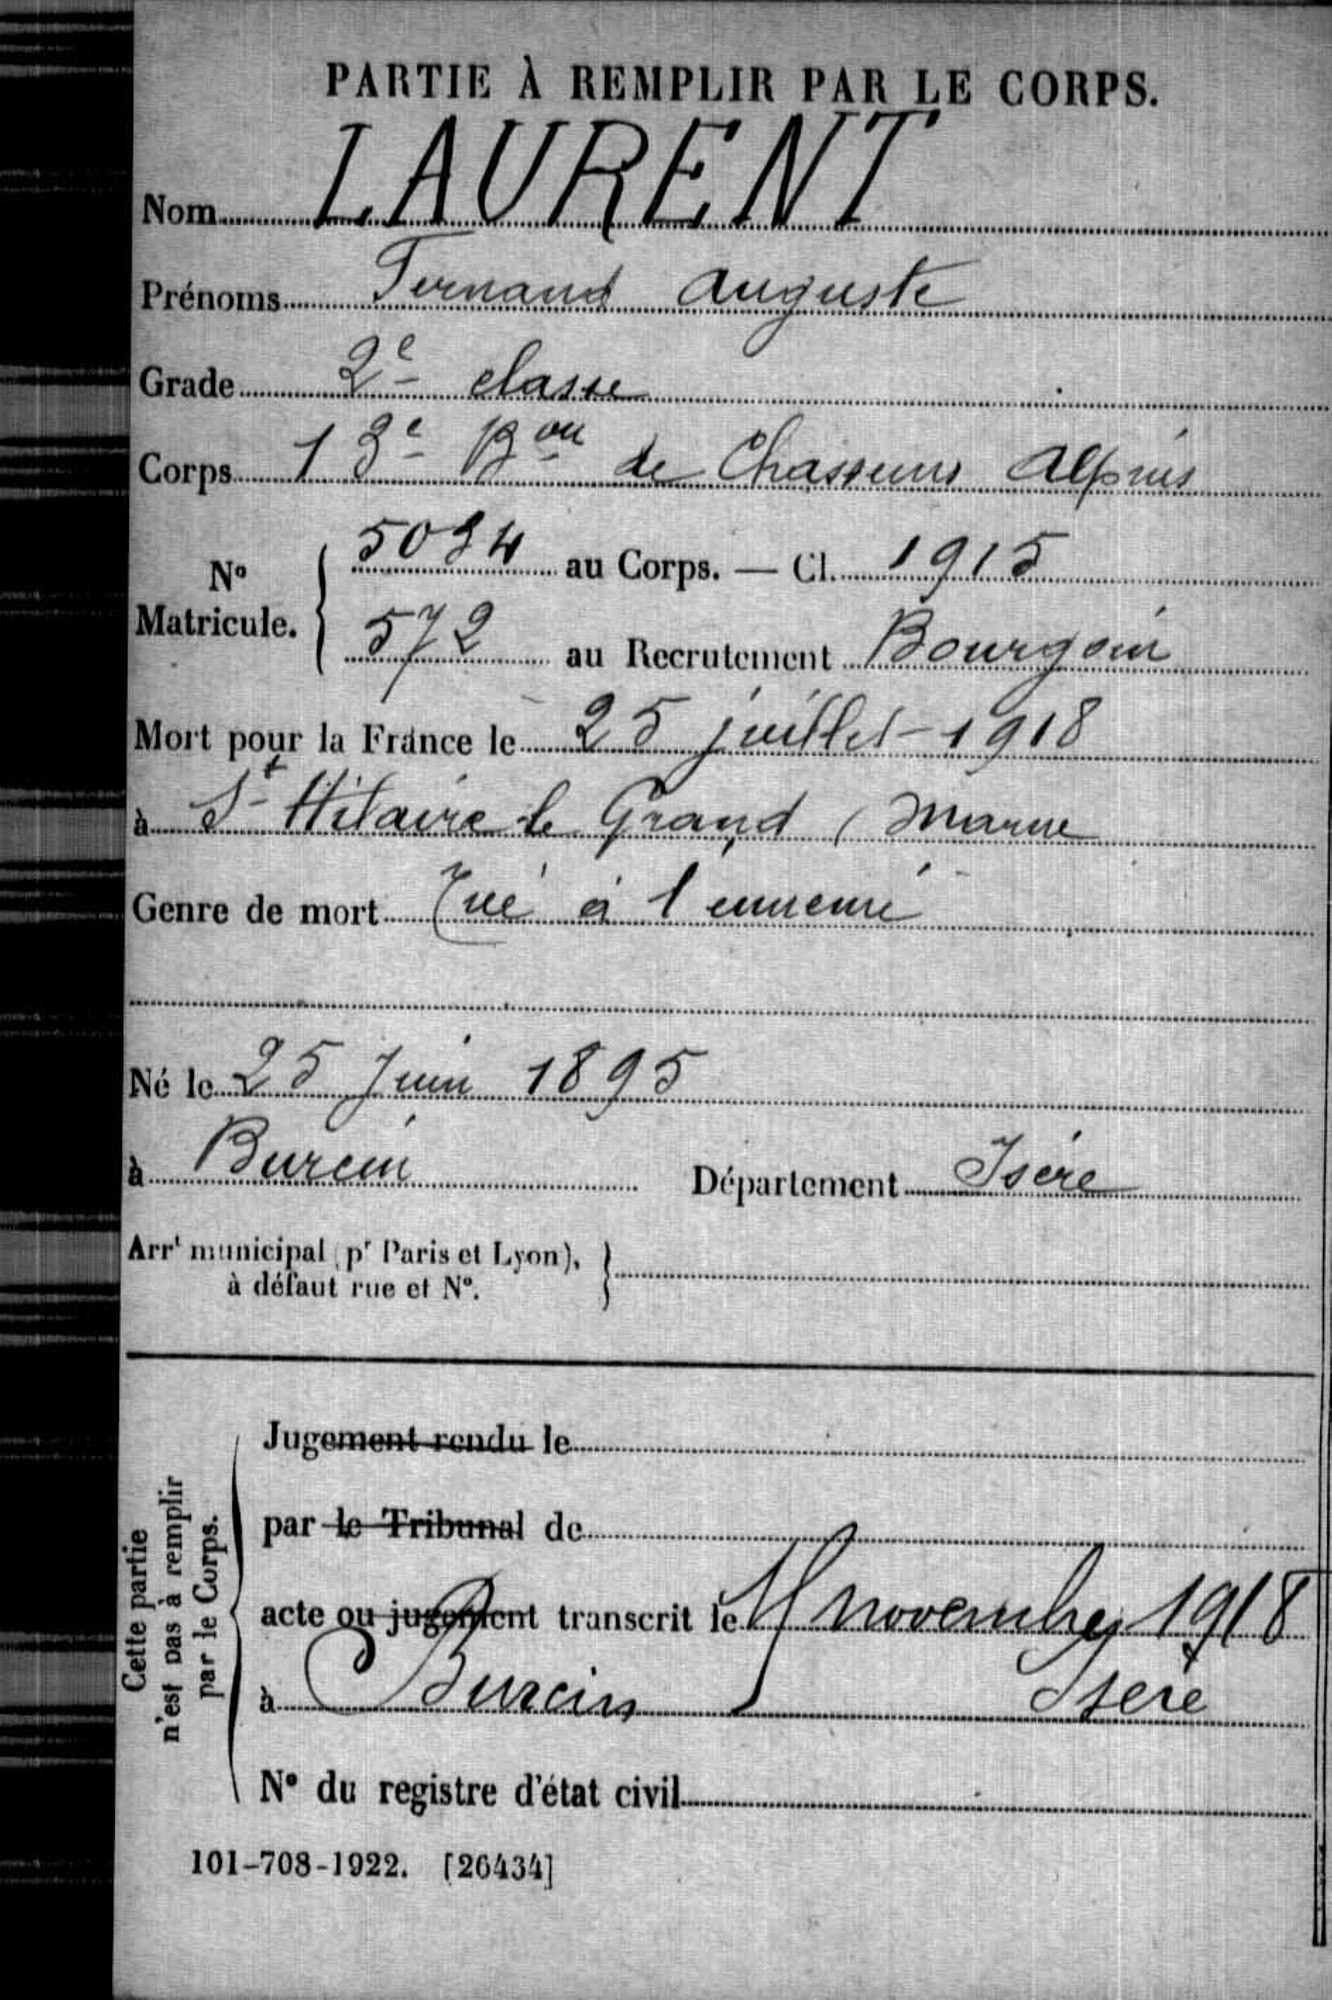 PARTIE À REMPLIR PAR LE CORPS.
Nom LAURENT
Prénoms Fernand Auguste
Grade 2e classe
Corps 13e Bon de Chasseurs Alpins
No Matricule. 5034 au Corps. — Cl. 1915
572 au Recrutement Bourgoin
Mort pour la France le 25 juillet 1918
à St Hilaire le Grand (Marne
Genre de mort Tué à l'ennemi
Né le 25 Juin 1895
à Burcin Département Isère
Arrt municipal (pr Paris et Lyon),
à défaut rue et No.
Cette partie
n'est pas à remplir
par le Corps.
Jugement rendu le
par le Tribunal de
acte ou jugement transcrit le novembre 1918
à Burcin Isère
No du registre d'état civil
101-708-1922. [26434]